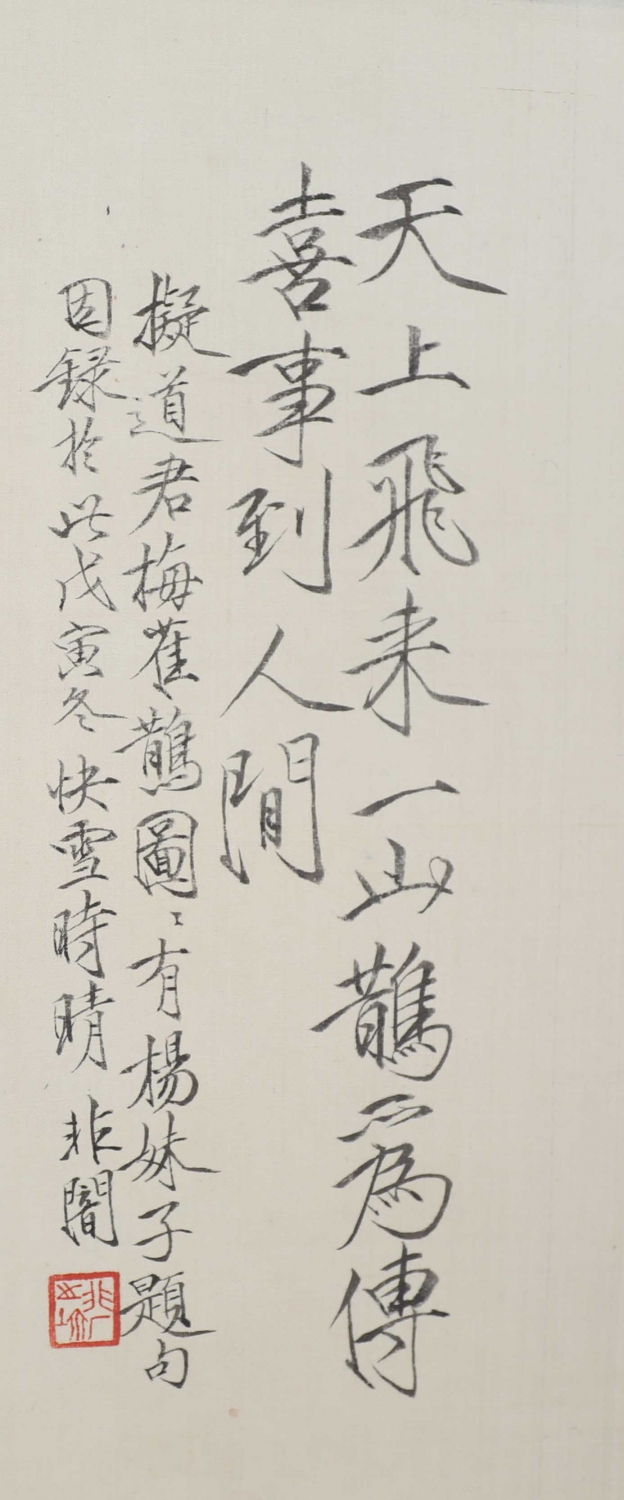 天上飛来一山鵲爲傳
喜事到人間
擬道君梅鵲圖〻有楊妹子題句
因録於此戊寅冬快雪時晴 非闇